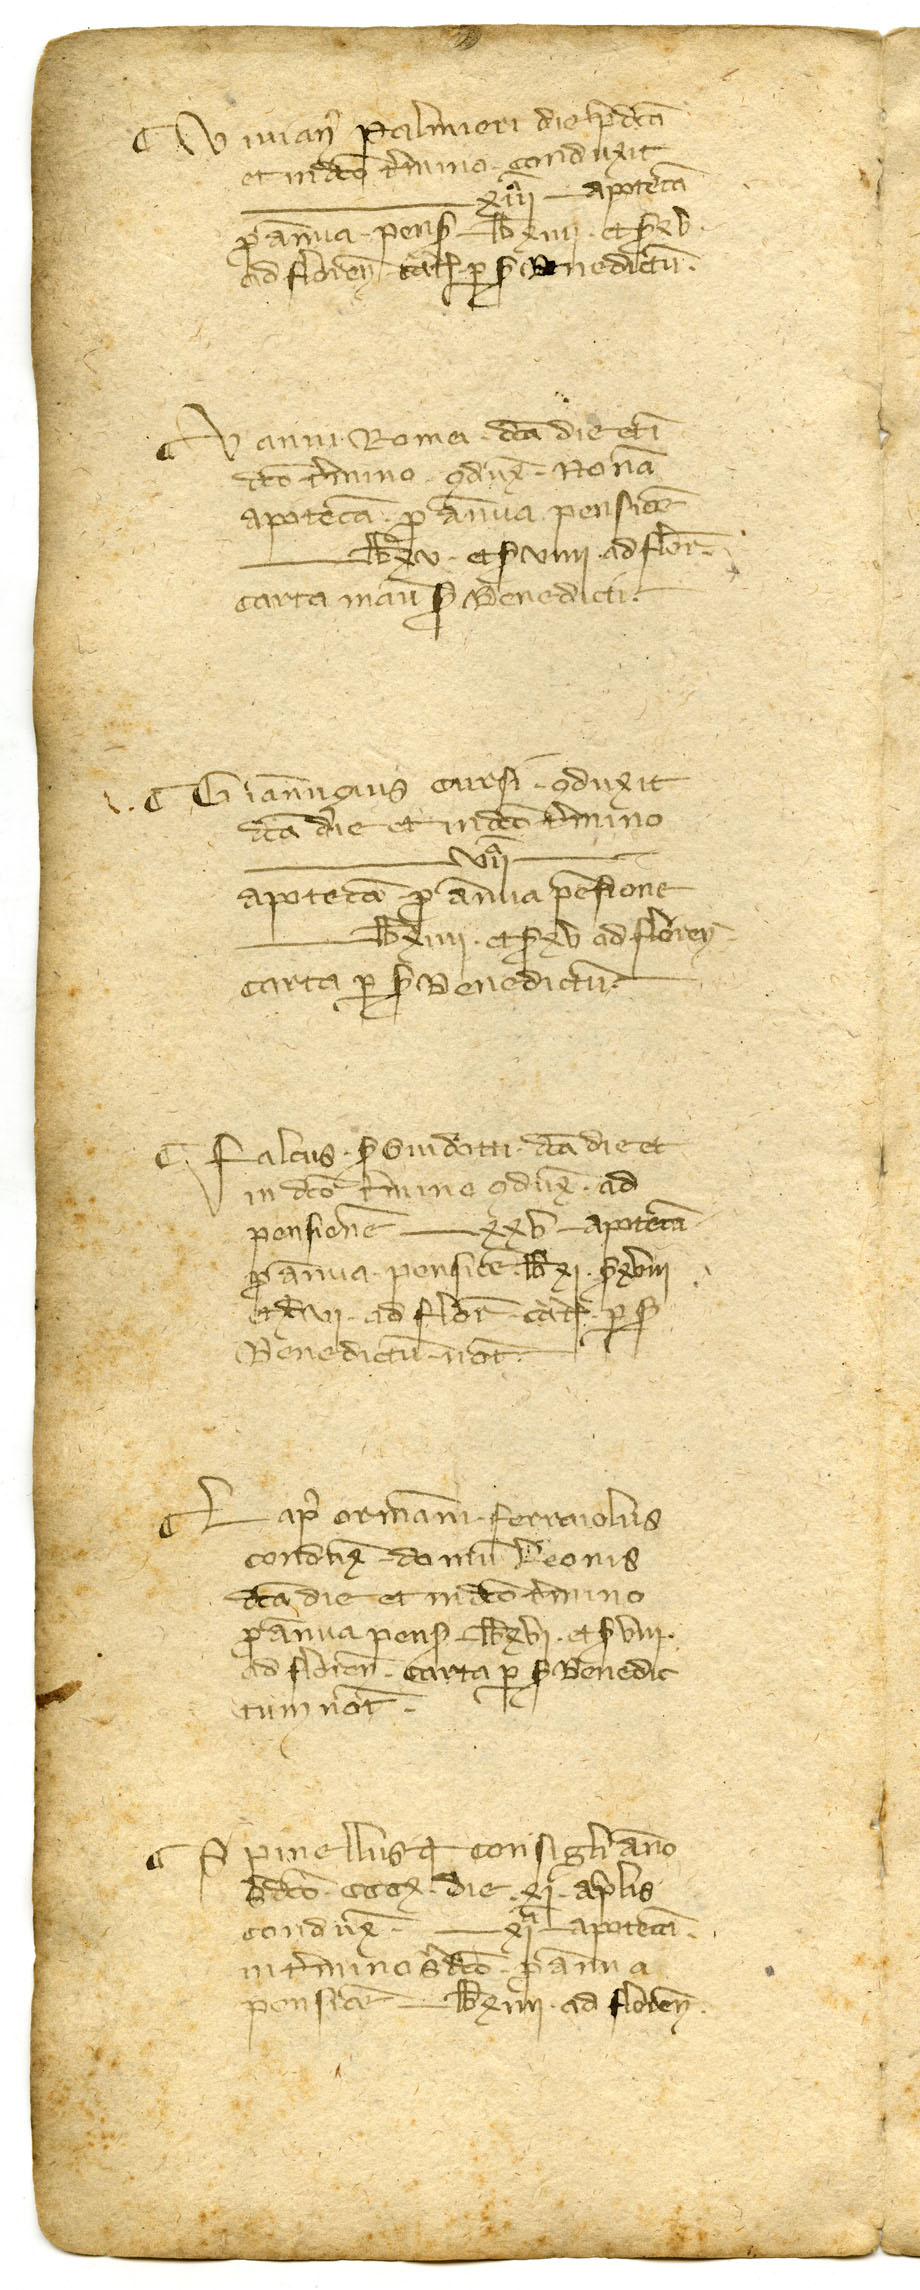 Viuan̄ Palmieri die sp̄dcā
et in dcō t̄mino conduxit
xiijᵃ apotecā
p̄ annua pens̄ lb xiiij et s̄ xv
ad floren̄ cart̄ p s̄ Benedictū
Vanni Romei dcā die et ī
dcō t̄mino ꝯdux̄ Nonā
apotecā p̄ annua pensiōe
lb xv et s̄ viiij ad flor̄
carta manu s̄ Benedicti
Giannuzius cursi ꝯduxit
dcā die et in dcō t̄mino
viiᵃ
apotecā p̄ annua pēsione
lb xiiij et s̄ xv ad floren̄
carta p s̄ Benedictū
Falcus s̄ Guidotti dcā die et
in dcō t̄mino ꝯdux̄ ad
pensionē xxv apotecā
p̄ annua pensiōe lb xi s̄ xviii
et d vij ad flor̄ cart̄ p s̄
Benedictū not̄
Lap̄ ormanni ferraiolus
condux̄ domū Leonis
dcā die et in dcō t̄mino
p̄ annua pens̄ lb xvi et s̄ viii
ad floren̄ carta p s̄ Benedic
tum not̄
Spinellus q̄ consigli anno
s̄dcō cccx die xj aprlis
condux̄ xiᵃ apotecā
in t̄mino s̄dcō p̄ annua
pensiōe lb xiiij ad floren̄